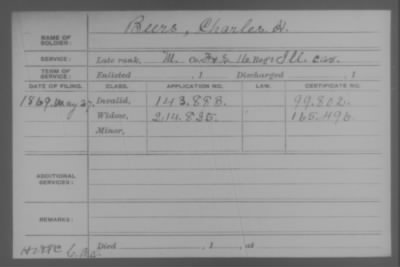 NAME OF SOLDIER: Beers, Charles H.
SERVICE: Late rank, M. Co. F & S 16 Reg't Ill. Cav.
TERM OF SERVICE: Enlisted , 1 Discharged , 1
DATE OF FILING. CLASS. APPLICATION NO. LAW. CERTIFICATE NO.
1869. May 27. Invalid, 143.888. 99.802.
Widow, 214.835. 165.496.
Minor,
ADDITIONAL SERVICES:
REMARKS:
Died , 1 , at